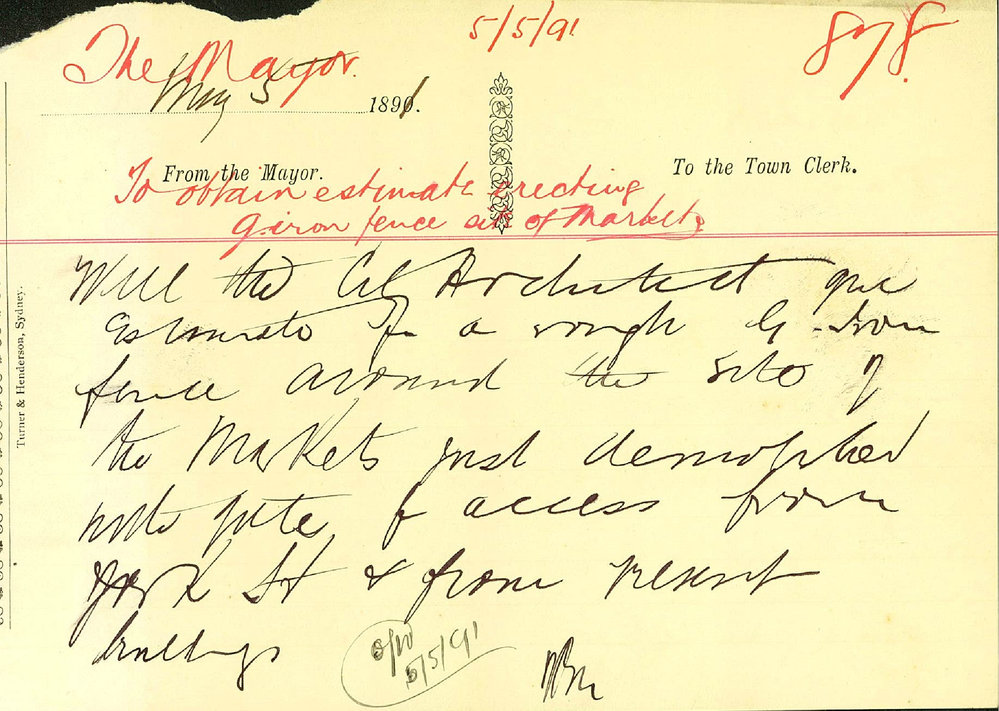 5/5/91
878.
The Mayor.
May 5 1891.
From the Mayor.
To the Town Clerk.
To obtain estimate erecting
G. iron fence site of Markets
Will the City Architect give
Estimate for a rough G. Iron
fence around the site of
the Markets just demolished
with gate for access from
York St & from present
buildings
5/5/91
Turner & Henderson, Sydney.